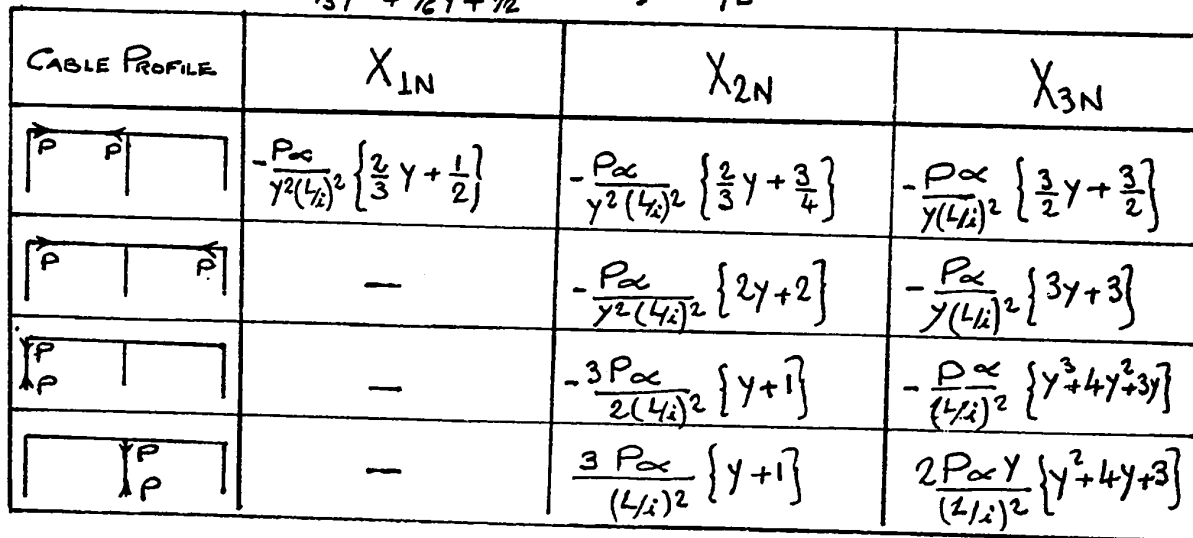 CABLE PROFILE X1N X2N X3N
P P -Pα/y²(L/i)² {2/3 y + 1/2} -Pα/y²(L/i)² {2/3 y + 3/4} -Pα/y(L/i)² {3/2 y + 3/2}
P P — -Pα/y²(L/i)² {2y+2} -Pα/y(L/i)² {3y+3}
P P — -3Pα/2(L/i)² {y+1} -Pα/(L/i)² {y³+4y²+3y}
P P — 3Pα/(L/i)² {y+1} 2Pαy/(L/i)² {y²+4y+3}